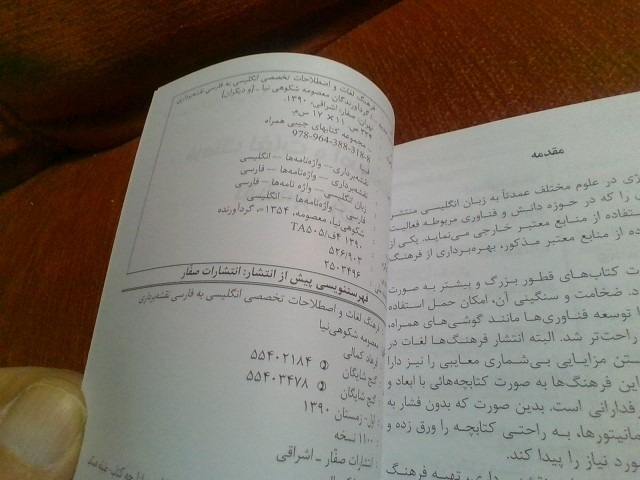 فرهنگ لغات و اصطلاحات تخصصی انگلیسی به فارسی نقشه‌برداری
گردآورندگان معصومه شکوهی نیا ـ (و دیگران)
تهران: صفار، اشراقی، ۱۳۹۰.
۲۳۹ ص. ۱۱ × ۱۷ س‌م.
مجموعه کتابهای جیبی همراه
978-964-388-318-8
فیپا
نقشه‌برداری — واژه‌نامه‌ها — انگلیسی
نقشه‌برداری — واژه‌نامه‌ها — فارسی
زبان انگلیسی — واژه نامه‌ها — فارسی
فارسی — واژه‌نامه‌ها — انگلیسی
شکوهی‌نیا، معصومه، ۱۳۵۴-، گردآورنده
TA۵۰۵/ف۴ ۱۳۹۰
۵۲۶/۹۰۳
۲۵۰۳۴۹۶
فهرستنویسی پیش از انتشار: انتشارات صفّار
فرهنگ لغات و اصطلاحات تخصصی انگلیسی به فارسی نقشه‌برداری
معصومه شکوهی‌نیا
فرهاد کمالی
گنج شایگان ۵۵۴۰۲۱۸۴
گنج شایگان ۵۵۴۰۳۴۷۸
اول - زمستان ۱۳۹۰
۱۱۰۰ نسخه
انتشارات صفّار ـ اشراقی
مقدمه
در علوم مختلف عمدتاً به زبان انگلیسی منتشر
را که در حوزه دانش و فناوری مربوطه فعالیت
استفاده از منابع معتبر خارجی می‌نماید. یکی از
از منابع معتبر مذکور، بهره‌برداری از فرهنگ
کتاب‌های قطور بزرگ و بیشتر به صورت
ضخامت و سنگینی آن، امکان حمل استفاده
توسعه فناوری‌ها مانند گوشی‌های همراه،
راحت‌تر شد. البته انتشار فرهنگ‌ها لغات در
مزایایی بی‌شماری معایبی را نیز دارا
این فرهنگ‌ها به صورت کتابچه‌هائی با ابعاد و
است. بدین صورت که بدون فشار به
مانیتورها، به راحتی کتابچه را ورق زده و
نیاز را پیدا کند.
تهیه فرهنگ